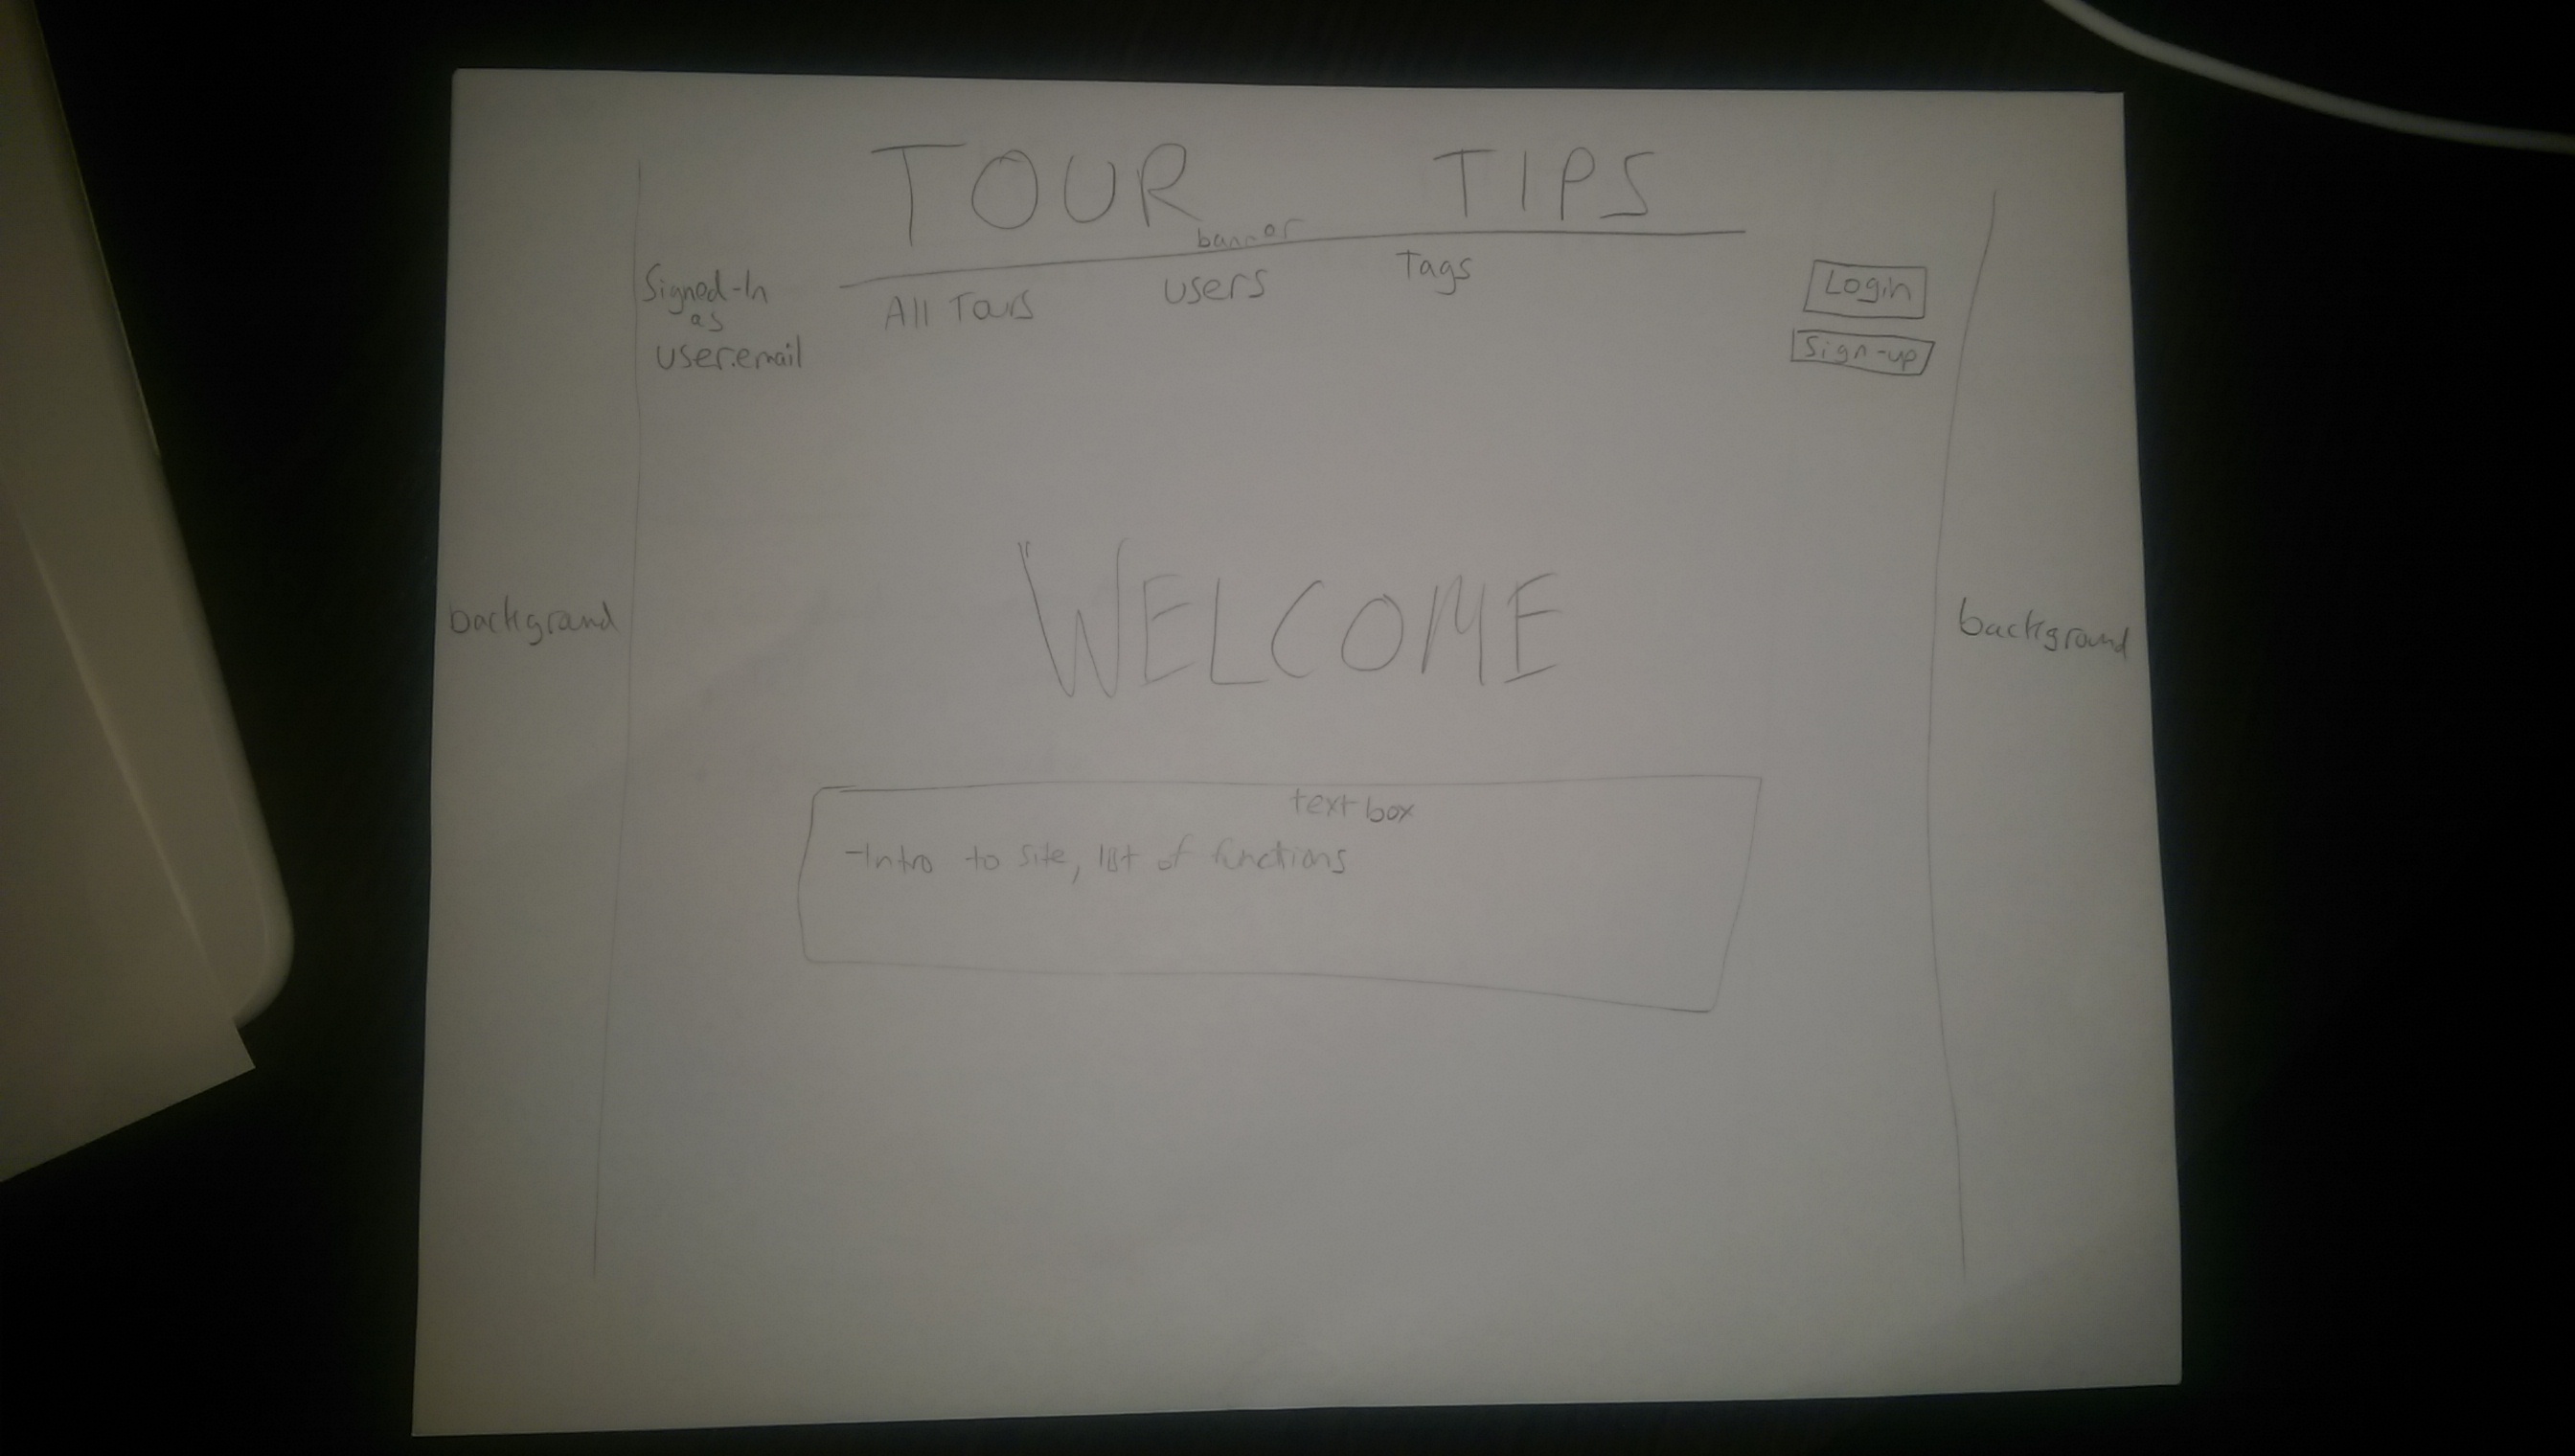 TOUR TIPS
banner
Signed-In
as
user.email
All Tours
users
Tags
Login
Sign-up
WELCOME
background
background
text box
-Intro to site, list of functions